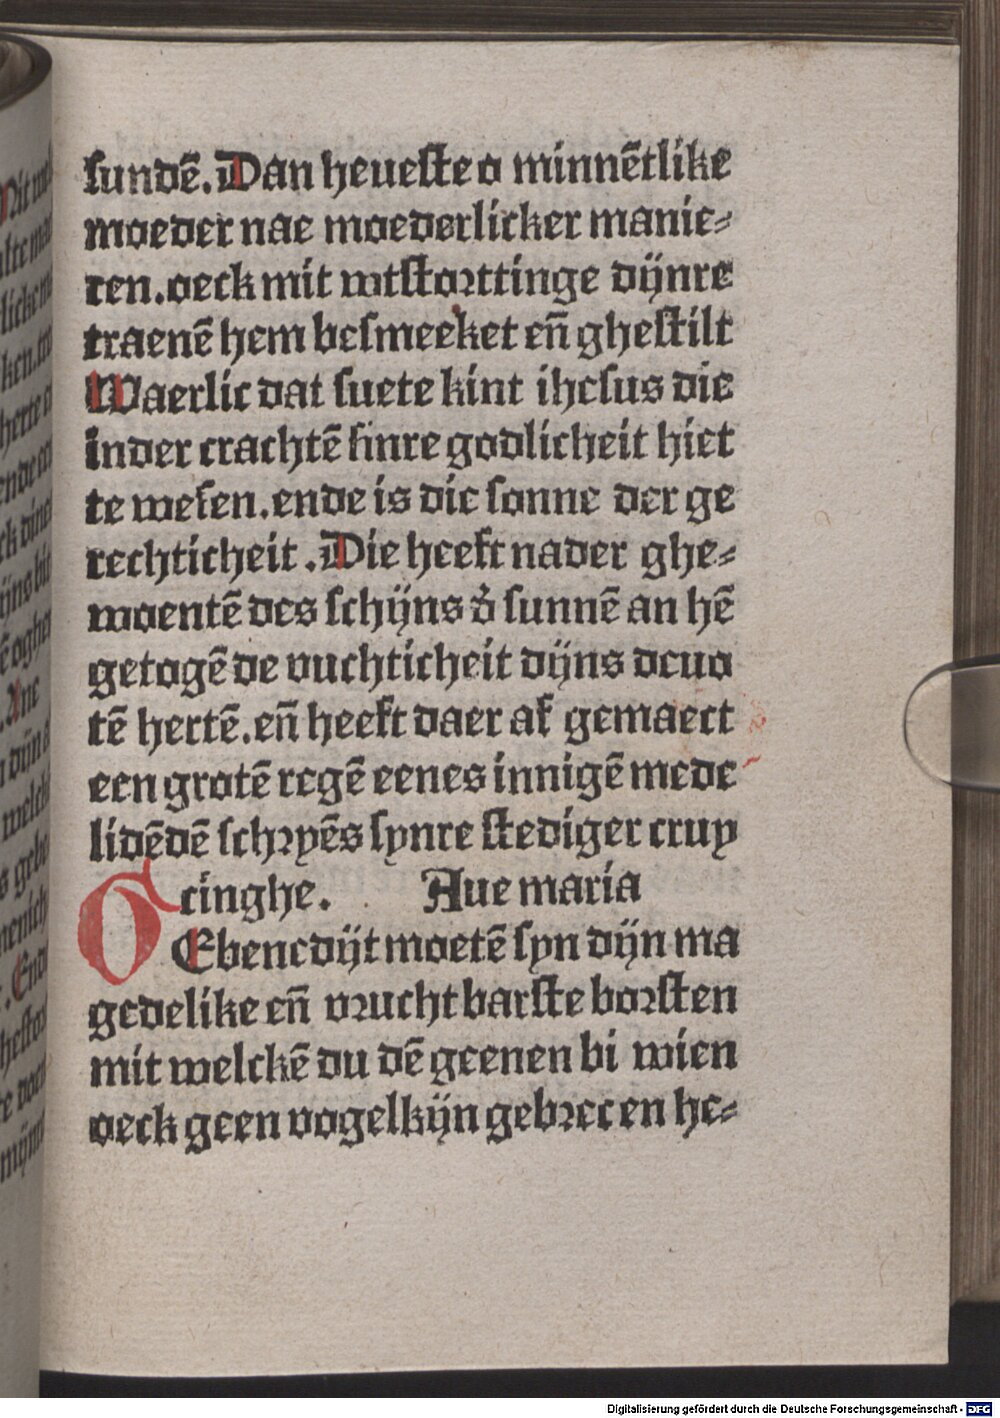 sundē. Dan heueste o minnētlike
moeder nae moederlicker manie⸗
ren. oeck mit wtstorttinge dÿnre
traenē hem besmeeket en̄ ghestilt
Waerlic dat suete kint ihesus die
in der crachtē sinre godlicheit hiet
te wesen. ende is die sonne der ge
rechticheit. Die heeft na der ghe⸗
woentē des schÿns d̓ sunnē an hē
getogē de vuchticheit dÿns deuo
tē hertē. en̄ heeft daer af gemaect
een grotē regē eenes innigē mede
lidēdē schryēs synre stediger cruy
cinghe. Aue maria
GEbenedÿt moetē syn dÿn ma
gedelike en̄ vrucht barste borsten
mit welckē du dē geenen bi wien
oeck geen vogelkÿn gebrec en he⸗
Digitalisierung gefördert durch die Deutsche Forschungsgemeinschaft - DFG